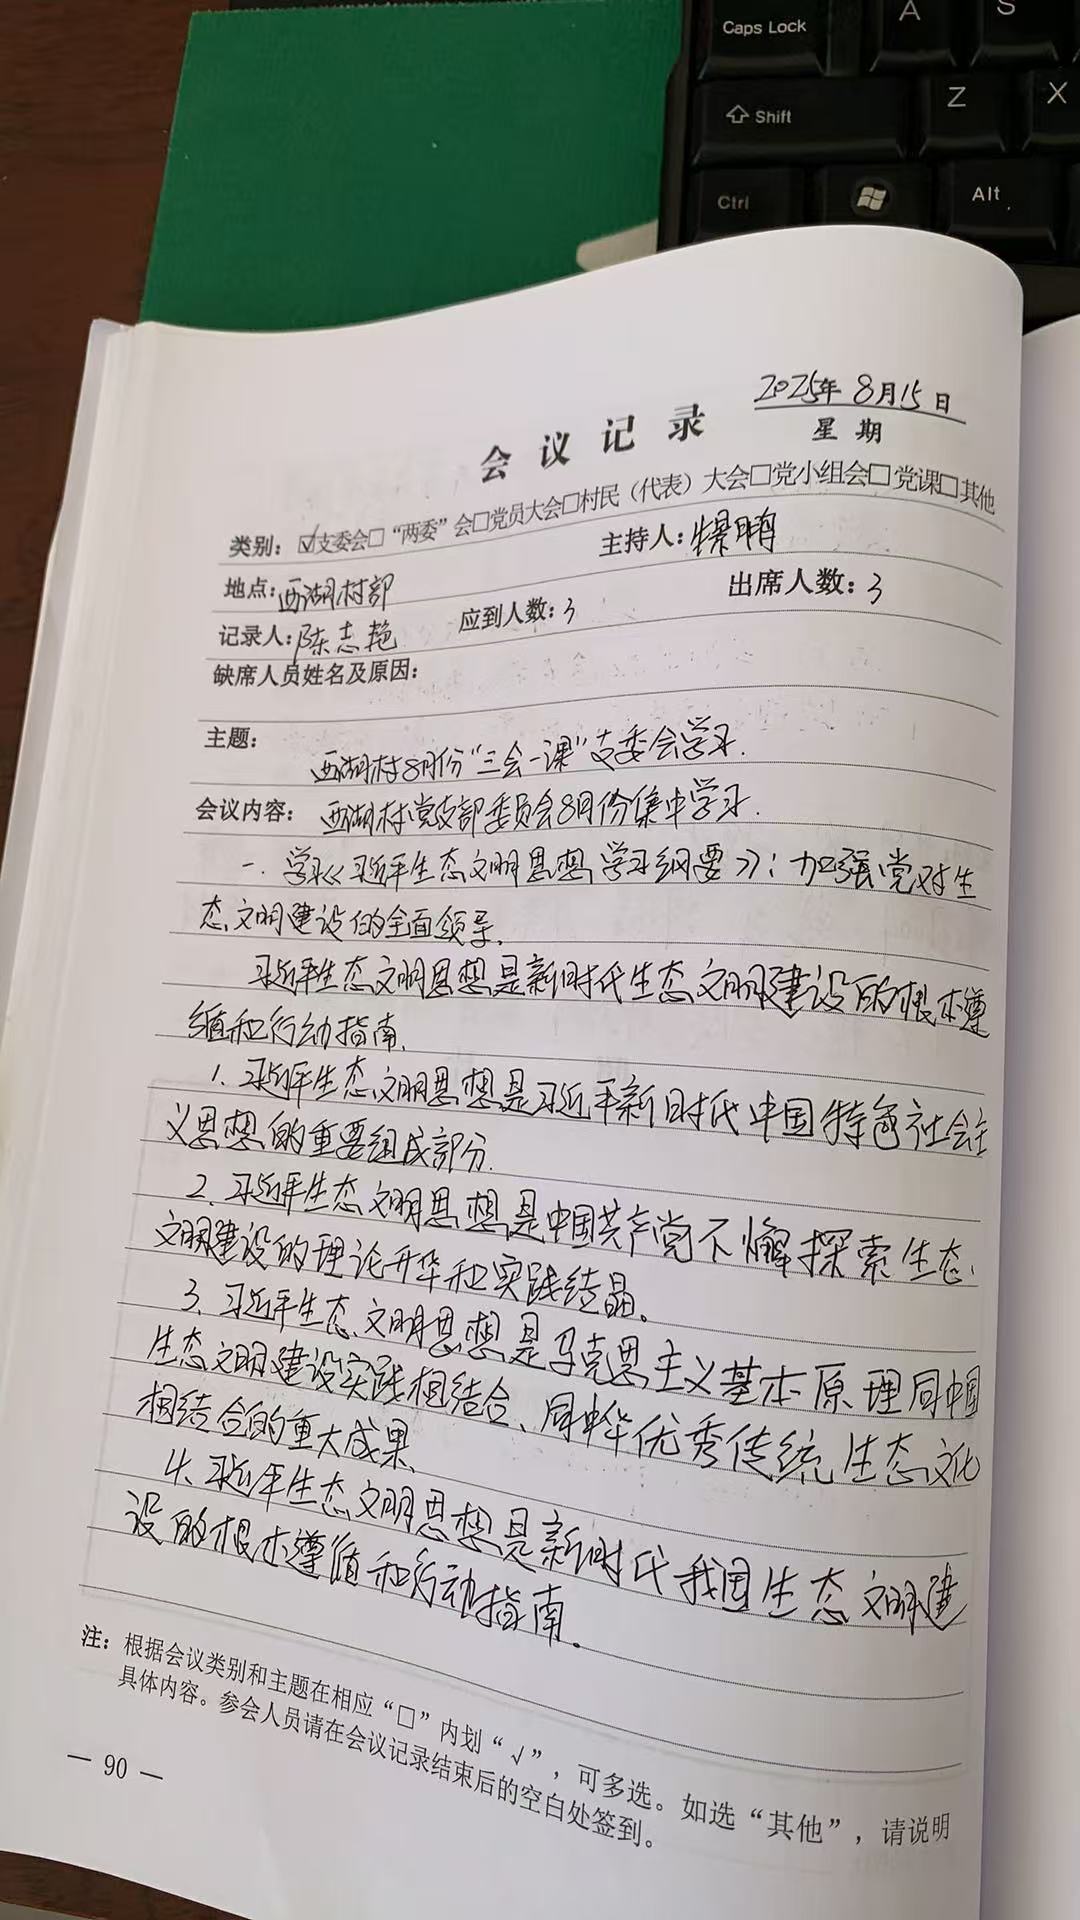 Caps Lock
A
S
Shift
Z
X
Ctrl
Alt
2025年8月15日
会议记录
星期
类别：☑支委会□“两委”会□党员大会□村民（代表）大会□党小组会□党课□其他
地点：西湖村部 主持人：鹏
记录人：陈志艳 应到人数：3 出席人数：3
缺席人员姓名及原因：
主题：
西湖村8月份“三会一课”支委会学习.
会议内容：西湖村党支部委员会8月份集中学习.
一.学习《习近平生态文明思想学习纲要》：加强党对生
态文明建设的全面领导.
习近平生态文明思想是新时代生态文明建设的根本遵
循和行动指南.
1.习近平生态文明思想是习近平新时代中国特色社会主
义思想的重要组成部分.
2.习近平生态文明思想是中国共产党不懈探索生态
文明建设的理论升华和实践结晶。
3、习近平生态文明思想是马克思主义基本原理同中国
生态文明建设实践相结合、同中华优秀传统生态文化
相结合的重大成果.
4.习近平生态文明思想是新时代我国生态文明建
设的根本遵循和行动指南。
注：根据会议类别和主题在相应“□”内划“√”，可多选。如选“其他”，请说明
具体内容。参会人员请在会议记录结束后的空白处签到。
— 90 —